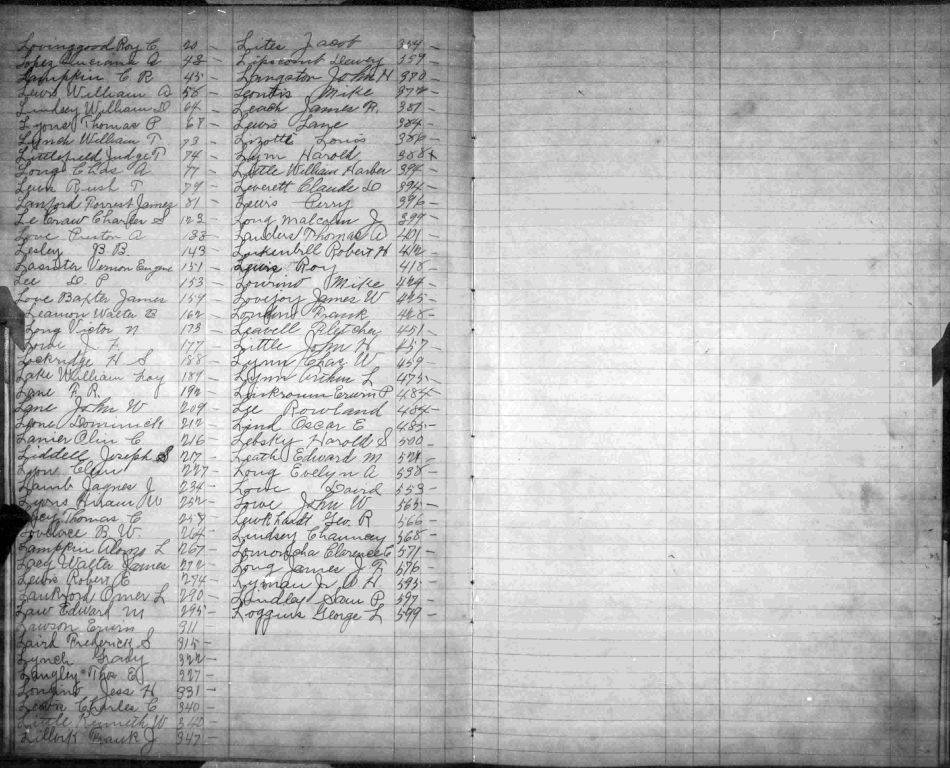 Lovinggood Roy C 20 -
Lopez Luciana G 42 -
Lampkin C R 45 -
Lewis William D 58 -
Lindsey William D 64 -
Lyons Thomas P 68 -
Lynch William T 73 -
Littlefield Judge T 74 -
Long Chas A 77 -
Rush T 79 -
Lanford Forrest James 81 -
Le Craw Charles S 123 -
Love Preston A 133 -
Lesley B. B. 143 -
Lassiter Vernon Eugene 151 -
Lee D. P 153 -
Love Baxter James 159 -
Leamon Walter B 162 -
Long Victor N 173 -
Lowe J F 177 -
Lockridge H S 188 -
Lake William Loy 189 -
Lane F. R. 192 -
Lane John W 209 -
Lyons Dominick 212 -
Lanier Olin C 216 -
Liddell Joseph S 217 -
Lyon 227 -
Lamb J 234 -
Lyons Hiram W 252 -
Lacy Thomas C 258 -
Lovelace B. W. 264 -
Lampkin Alonzo L 267 -
Lacy Walter James 272 -
Lewis Robert E 274 -
Lankford Omer L 290 -
Law Edward M 295 -
Lawson Erwin 311 -
Laird Frederick S 315 -
Lynch Grady 322 -
Langley Thos E 327 -
Jess H 331 -
Charles C 340 -
Little Kenneth W 340 -
Frank J 347 -
Lites Jacob 354 -
Lipscomb Dewey 359 -
Langston John H 370 -
Leontis Mike 372 -
Leach James R. 381 -
Lewis Lane 384 -
Lizotte Louis 386 -
Lynn Harold 388 -
Little William Harber 394 -
Leverett Claude D 394 -
Lewis Perry 396 -
Long Malcolm J 399 -
Landers Thomas W 401 -
Robert H 412 -
Lewis Roy 418 -
Mike 424 -
Lovejoy James W 425 -
Frank 428 -
Leavell Fletcher 451 -
Little John H 457 -
Lynn Chas. W 459 -
Lynn Arthur L 475 -
Erwin P 484 -
Lee Rowland 484 -
Lind Oscar E 485 -
Lebsky Harold S 500 -
Leath Edward M 528 -
Long Evelyn A 538 -
Love David 553 -
Lowe John W 565 -
Geo. R 566 -
Lindsey Chauncey 568 -
Clarence C 571 -
Long James J F 576 -
Lyman Jr W H 595 -
Lindley Sam P 597 -
Loggins George L 599 -